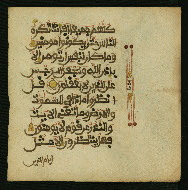 كلهم جميعا أفأنت تكره
الناس حتى يكونوا مومنين
وما كان لنفس أن تومن إلا
بإذن الله ويجعل الرجس
على الذين لا يعقلون قل
انظروا ماذا في السموت
والأرض وما تغني الأيت
والنذر عن قوم لا يومنون
فهل ينتظرون إلا مثل
أيام الذين